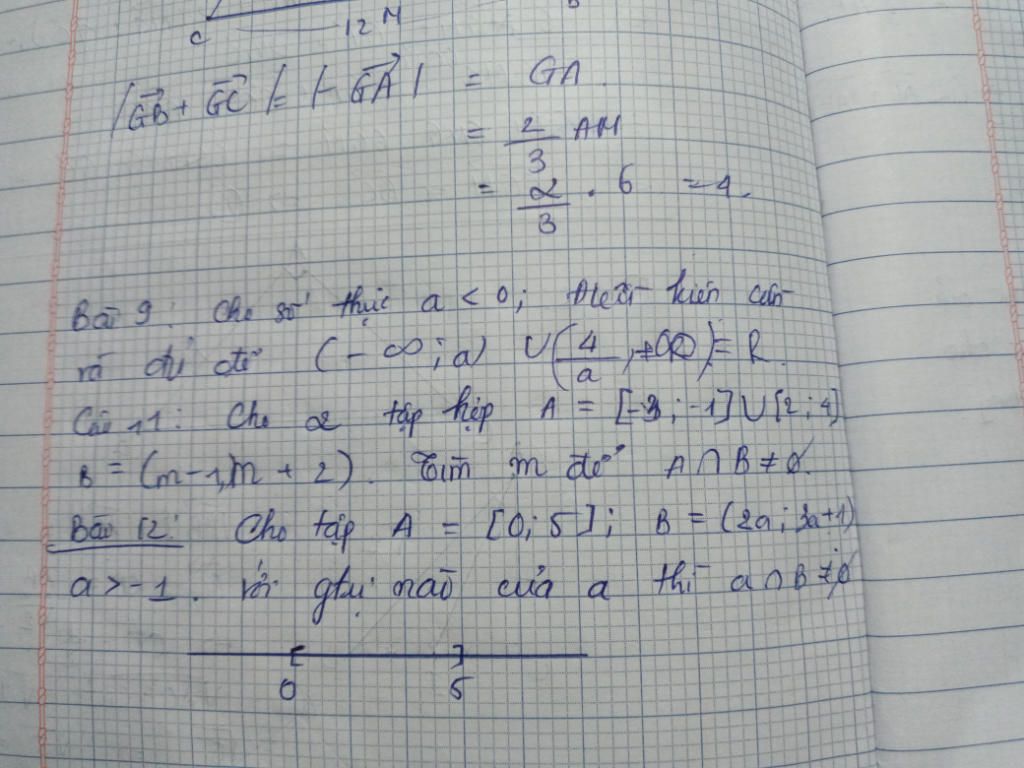 C 12 M B
|GB + GC| = |-GA| = GA.
= 2/3 AM
= 2/3 . 6 = 4.
Bài 9: Cho số thực a < 0; Điều kiện cần
và đủ để (-∞; a) ∪ (4/a; +∞) = R.
Câu 11: Cho 2 tập hợp A = [-3; -1] ∪ [2; 4]
B = (m-1, m + 2). Tìm m để A ∩ B ≠ ∅.
Bài 12: Cho tập A = [0; 5]; B = (2a; 3a+1)
a > -1. Với gtrị nào của a thì a ∩ B ≠ ∅
0 5